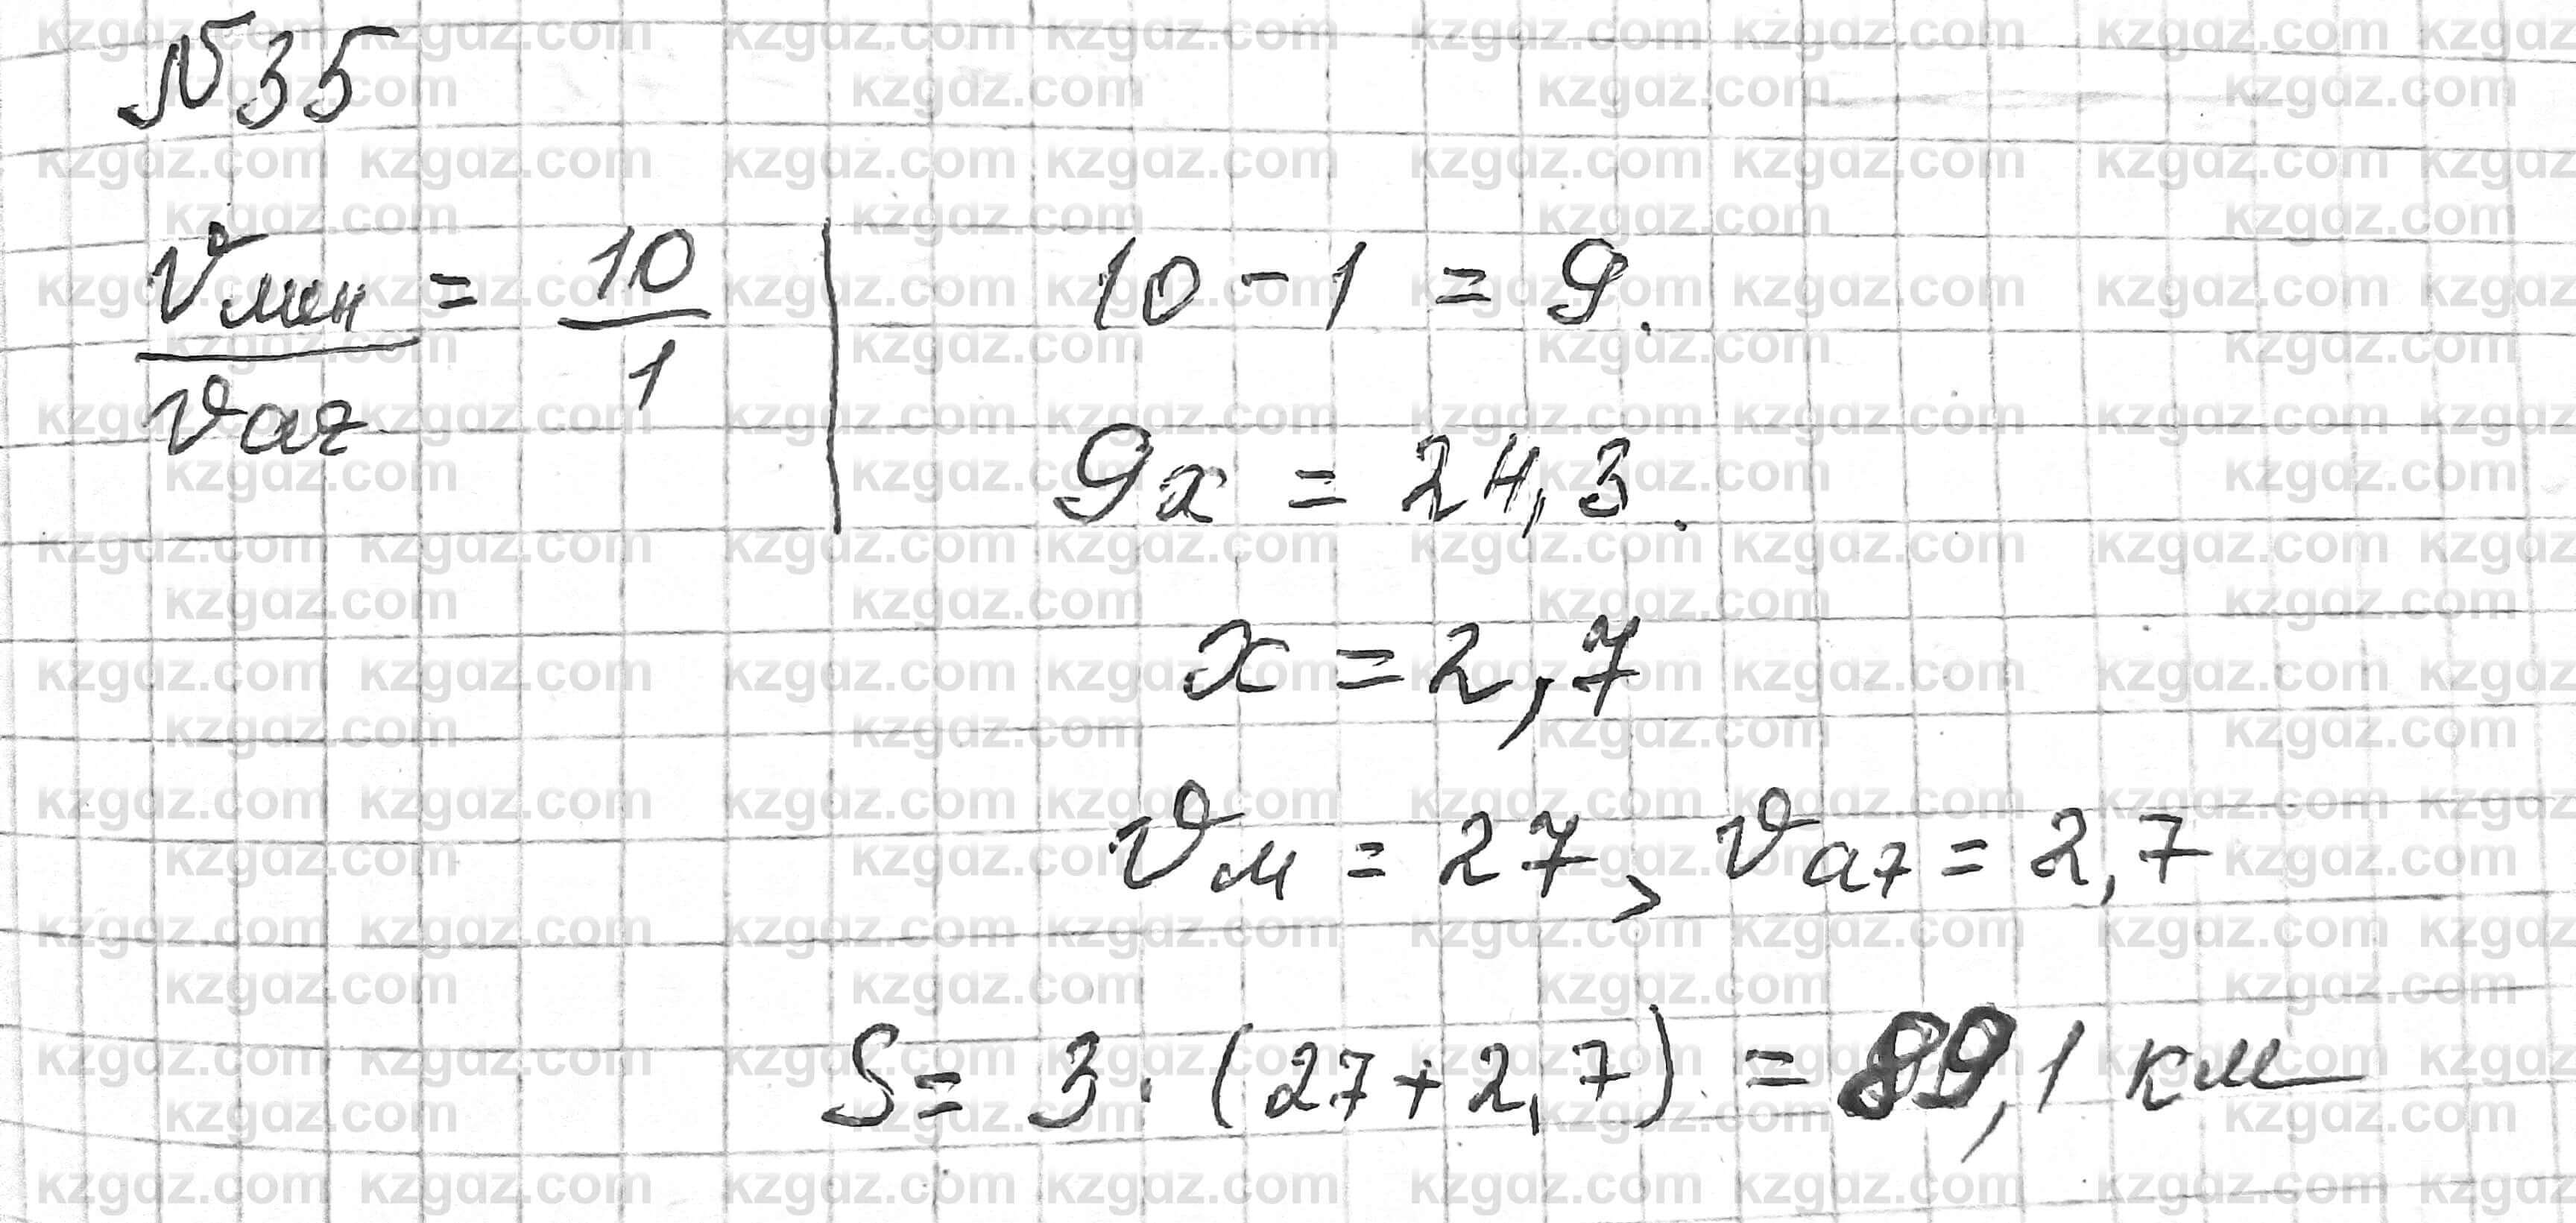 №35
vмен/vаг = 10/1
10 - 1 = 9.
9x = 24,3.
x = 2,7
vм = 27, vаг = 2,7
S = 3 · (27 + 2,7) = 89,1 км
kzgdz.com